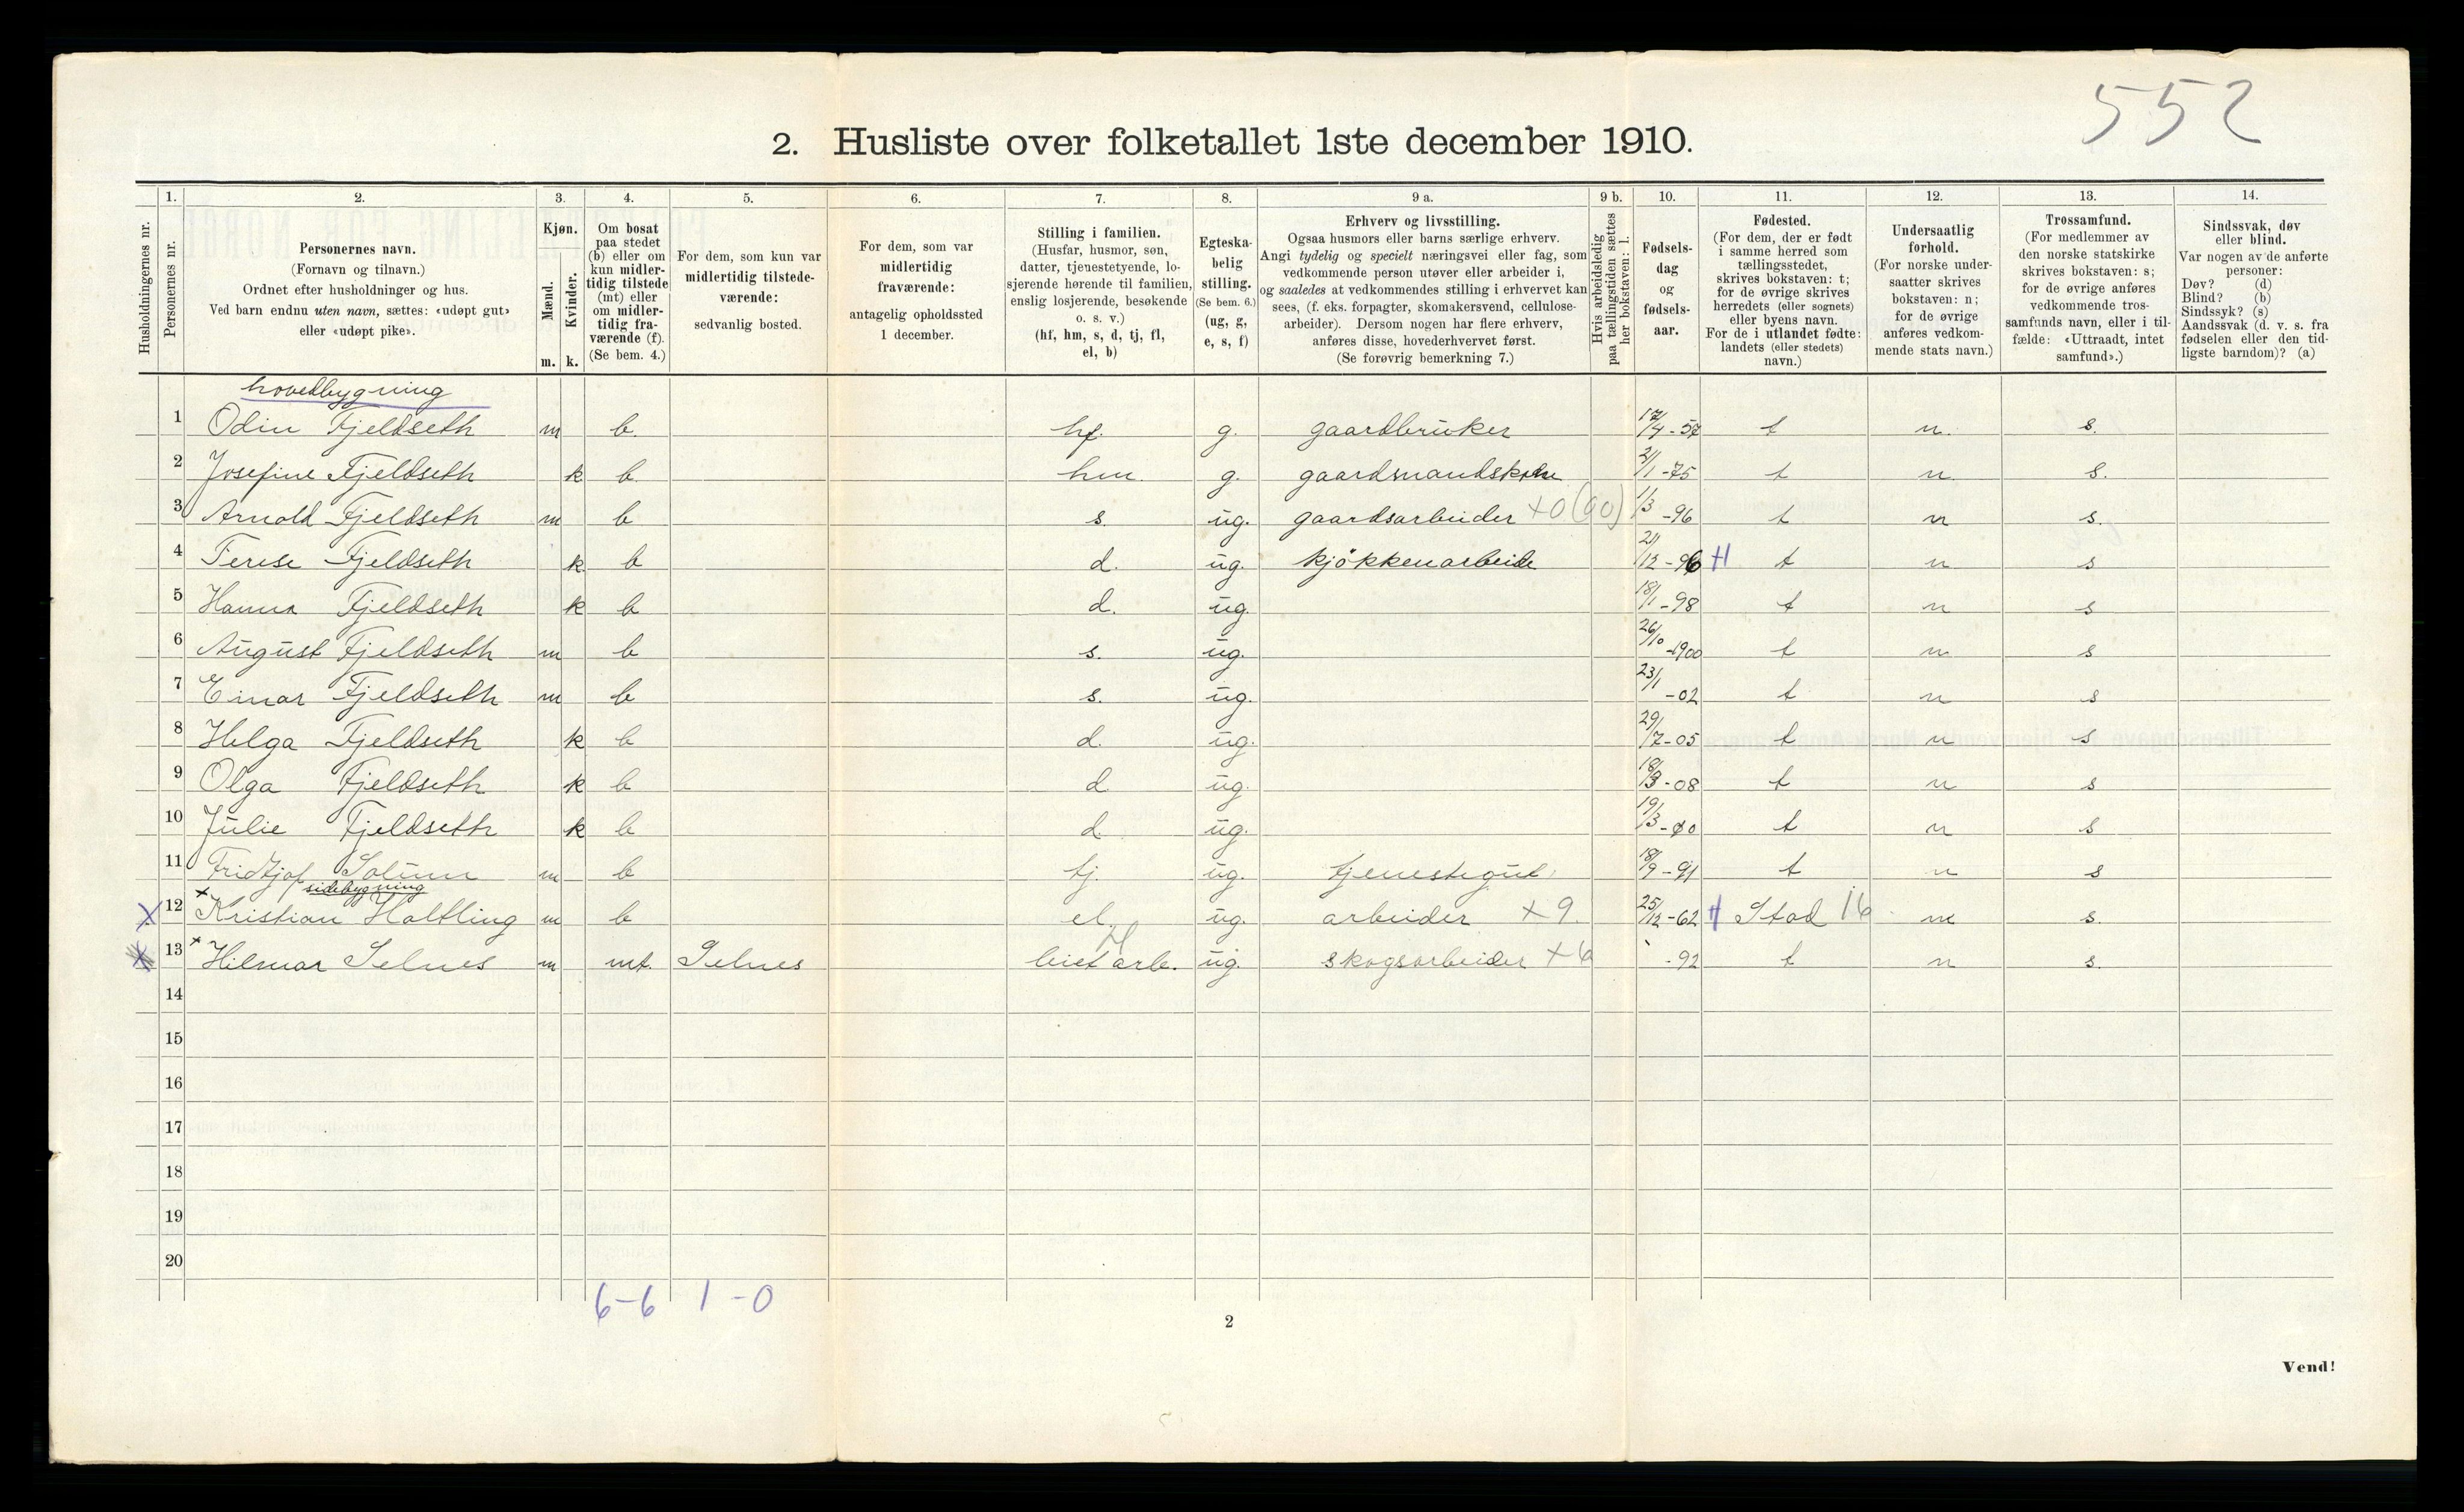 552
2. Husliste over folketallet 1ste december 1910.
Husholdningernes nr.
1.
Personernes nr.
2.
Personernes navn.
(Fornavn og tilnavn.)
Ordnet efter husholdninger og hus.
Ved barn endnu uten navn, sættes: «udøpt gut»
eller «udøpt pike».
3.
Kjøn.
Mænd.
Kvinder.
m. k.
4.
Om bosat
paa stedet
(b) eller om
kun midler-
tidig tilstede
(mt) eller
om midler-
tidig fra-
værende (f).
(Se bem. 4.)
5.
For dem, som kun var
midlertidig tilstede-
værende:
sedvanlig bosted.
6.
For dem, som var
midlertidig
fraværende:
antagelig opholdssted
1 december.
7.
Stilling i familien.
(Husfar, husmor, søn,
datter, tjenestetyende, lo-
sjerende hørende til familien,
enslig losjerende, besøkende
o. s. v.)
(hf, hm, s, d, tj, fl,
el, b)
8.
Egteska-
belig
stilling.
(Se bem. 6.)
(ug, g,
e, s, f)
9 a.
Erhverv og livsstilling.
Ogsaa husmors eller barns særlige erhverv.
Angi tydelig og specielt næringsvei eller fag, som
vedkommende person utøver eller arbeider i,
og saaledes at vedkommendes stilling i erhvervet kan
sees, (f. eks. forpagter, skomakersvend, cellulose-
arbeider). Dersom nogen har flere erhverv,
anføres disse, hovederhvervet først.
(Se forøvrig bemerkning 7.)
9 b.
Hvis arbeidsledig
paa tællingstiden sættes
her bokstaven: l.
10.
Fødsels-
dag
og
fødsels-
aar.
11.
Fødested.
(For dem, der er født
i samme herred som
tællingsstedet,
skrives bokstaven: t;
for de øvrige skrives
herredets (eller sognets)
eller byens navn.
For de i utlandet fødte:
landets (eller stedets)
navn.)
12.
Undersaatlig
forhold.
(For norske under-
saatter skrives
bokstaven: n;
for de øvrige
anføres vedkom-
mende stats navn.)
13.
Trossamfund.
(For medlemmer av
den norske statskirke
skrives bokstaven: s;
for de øvrige anføres
vedkommende tros-
samfunds navn, eller i til-
fælde: «Uttraadt, intet
samfund».)
14.
Sindssvak, døv
eller blind.
Var nogen av de anførte
personer:
Døv? (d)
Blind? (b)
Sindssyk? (s)
Aandssvak (d. v. s. fra
fødselen eller den tid-
ligste barndom)? (a)
hovedbygning
1 Odin Fjeldseth m b. hf. g. gaardbruker 17/4-57 t n. s.
2 Josefine Fjeldseth k b hm. g. gaardmandskone 2/1-75 t n. s.
3 Arnold Fjeldseth m b s. ug. gaardsarbeider +0 (00) 1/3-96 t n s.
4 Terese Fjeldseth k b d. ug. kjøkkenarbeide 21/12-96 H t n s
5 Hanna Fjeldseth k b d. ug. 18/1-98 t n s
6 August Fjeldseth m b s. ug. 26/10-1900 t n s
7 Einar Fjeldseth m b s. ug. 23/1-02 t n s
8 Helga Fjeldseth k b d. ug. 29/7-05 t n s
9 Olga Fjeldseth k b d ug. 18/3-08 t n s
10 Julie Fjeldseth k b d ug. 19/3-00 t n s
11 Fridtjof Solum m b tj. ug. tjenestegut 18/9-91 t n s
sidebygning
X 12 × Kristian Holtling m b el. ug. arbeider +9. 25/12-62 H Stod 16 n s.
X 13 × Hilmar Selnes m mt. Selnes leiet arb. H ug. skogsarbeider +6 -92 t n s.
14
15
16
17
18
19
20
6-6 1-0
2
Vend!